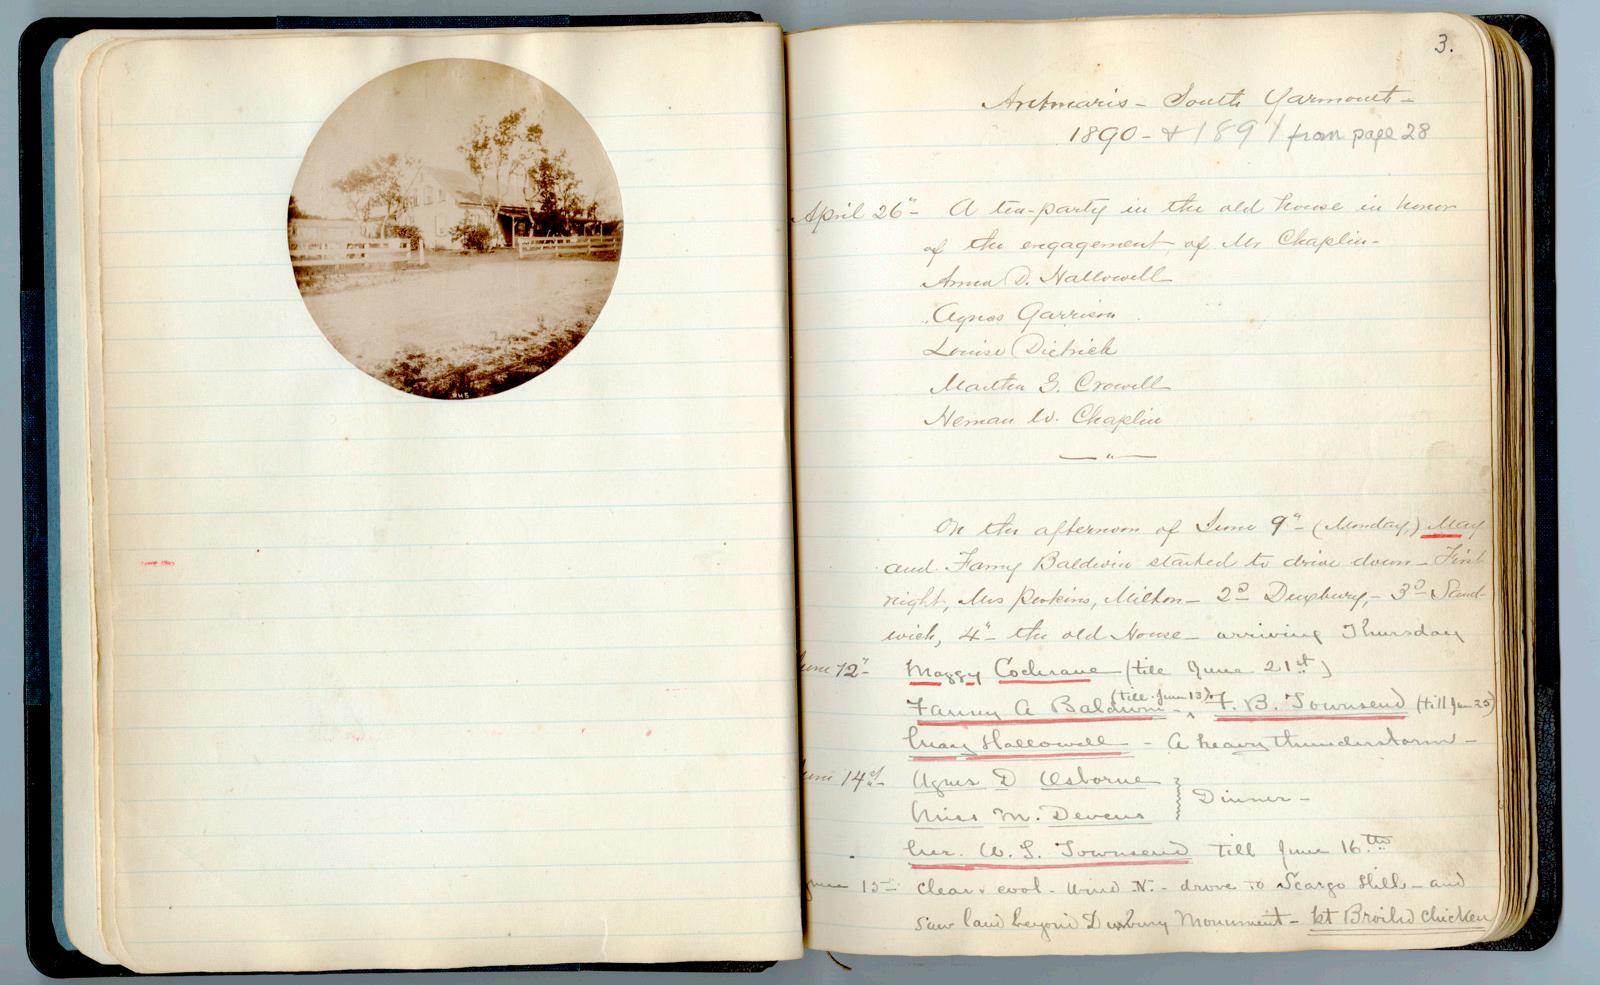 3.
Aretmaris - South Yarmouth -
1890 - & 1891 from page 28
April 26" - A tea-party in the old house in honor
of the engagement of Mr Chaplin -
Anna D. Hallowell
Agnes Garrison
Louise Dietrick
Martha G. Crowell
Heman W. Chaplin
On the afternoon of June 9" - (Monday,) May
and Fanny Baldwin started to drive down - First
night, Mrs Perkins, Milton - 2d Duxbury, - 3d Sand-
wich, 4" - the old House - arriving Thursday
June 12" - Maggy Cochrane (till June 21st)
Fanny A Baldwin - (till June 13) F. B. Townsend (till Jun 25)
May Hallowell - A heavy thunderstorm -
June 14 - Agnes D Osborne
Miss M. Devens } Dinner -
Mr. W. S. Townsend till June 16th
June 15 - Clear & cool - Wind N. - drove to Scargo Hill - and
saw land beyond Duxbury Monument - 1st Broiled Chicken